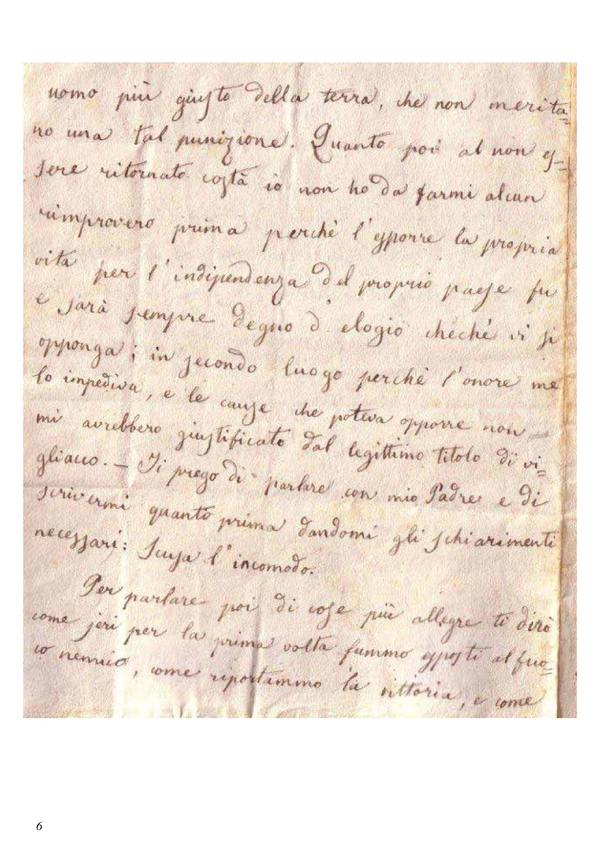 uomo più giusto della terra, che non merita=
no una tal punizione. Quanto poi al non es=
sere ritornato costà io non ho da farmi alcun
rimprovero prima perchè l'esporre la propria
vita per l'indipendenza del proprio paese fu
e sarà sempre degno d'elogio checchè vi si
opponga; in secondo luogo perchè l'onore me
lo impediva, e le cause che poteva opporre non
mi avrebbero giustificato dal legittimo titolo di vi=
gliacco. — Ti prego di parlare con mio Padre e di
scrivermi quanto prima dandomi gli schiarimenti
necessari: Scusa l'incomodo.
Per parlare poi di cose più allegre ti dirò
come jeri per la prima volta fummo esposti al fuo=
co nemico, come riportammo la vittoria, e come
6